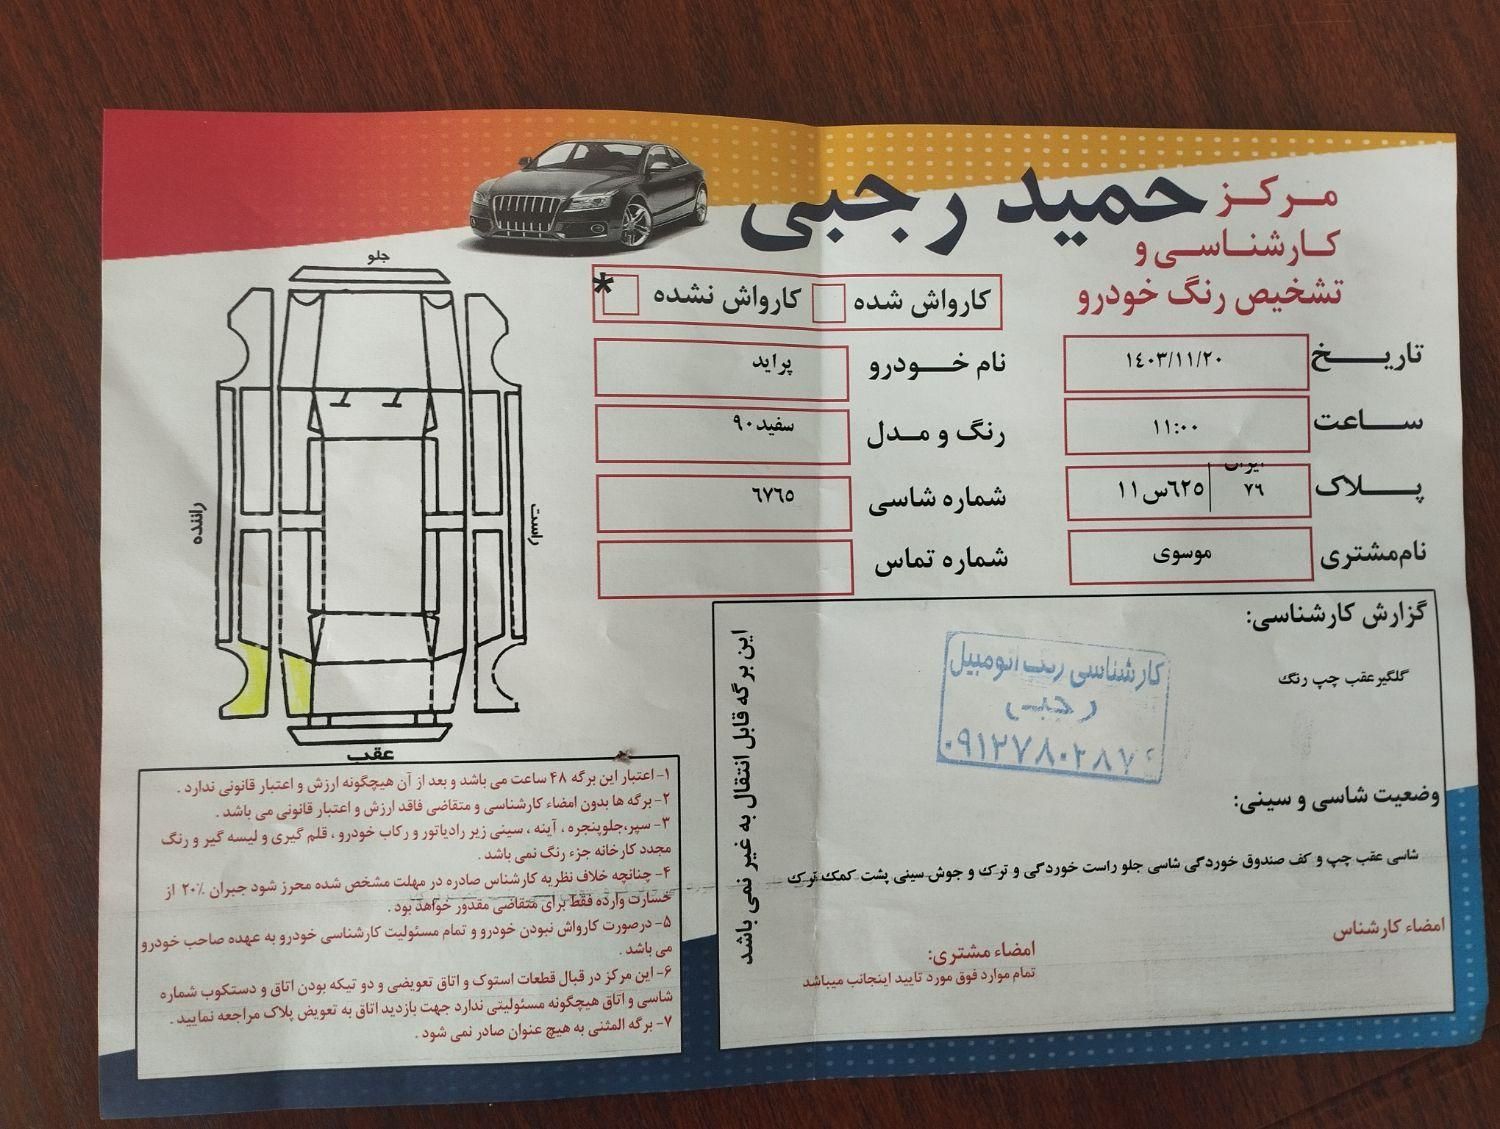 مرکز حمید رجبی
کارشناسی و
تشخیص رنگ خودرو
کارواش شده
کارواش نشده *
تاریخ ۱٤۰۳/۱۱/۲۰
نام خودرو پراید
ساعت ۱۱:۰۰
رنگ و مدل سفید۹۰
پلاک ٦۲٥س۱۱ ۷٦
شماره شاسی ٦۷٦٥
نام مشتری موسوی
شماره تماس
جلو
راننده
راست
عقب
گزارش کارشناسی:
گلگیرعقب چپ رنگ
کارشناسی رنگ اتومبیل
وضعیت شاسی و سینی:
شاسی عقب چپ و کف صندوق خوردگی شاسی جلو راست خوردگی و ترک و جوش سینی پشت کمک ترک
امضاء کارشناس
امضاء مشتری:
تمام موارد فوق مورد تایید اینجانب میباشد
این برگه قابل انتقال به غیر نمی باشد
۱- اعتبار این برگه ۴۸ ساعت می باشد و بعد از آن هیچگونه ارزش و اعتبار قانونی ندارد .
۲- برگه ها بدون امضاء کارشناسی و متقاضی فاقد ارزش و اعتبار قانونی می باشد .
۳- سپر،جلوپنجره ، آینه ، سینی زیر رادیاتور و رکاب خودرو ، قلم گیری و لیسه گیر و رنگ
مجدد کارخانه جزء رنگ نمی باشد .
۴- چنانچه خلاف نظریه کارشناس صادره در مهلت مشخص شده محرز شود جبران ۲۰٪ از
خسارت وارده فقط برای متقاضی مقدور خواهد بود .
۵- درصورت کارواش نبودن خودرو و تمام مسئولیت کارشناسی خودرو به عهده صاحب خودرو
می باشد .
۶- این مرکز در قبال قطعات استوک و اتاق تعویضی و دو تیکه بودن اتاق و دستکوب شماره
شاسی و اتاق هیچگونه مسئولیتی ندارد جهت بازدید اتاق به تعویض پلاک مراجعه نمایید .
۷- برگه المثنی به هیچ عنوان صادر نمی شود .